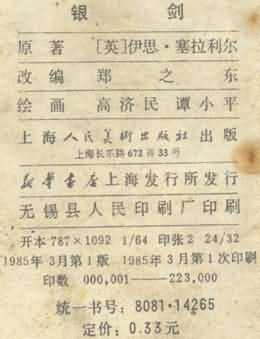 银 剑
原 著 [英]伊思·塞拉利尔
改 编 郑 之 东
绘 画 高济民 谭小平
上海人民美術出版社 出版
上海长乐路672弄33号
新华书店上海发行所发行
无锡县人民印刷厂印刷
开本787×1092 1/64 印张2 24/32
1985年3月第1版 1985年3月第1次印刷
印数 000,001——223,000
统一书号: 8081·14265
定价: 0.33元